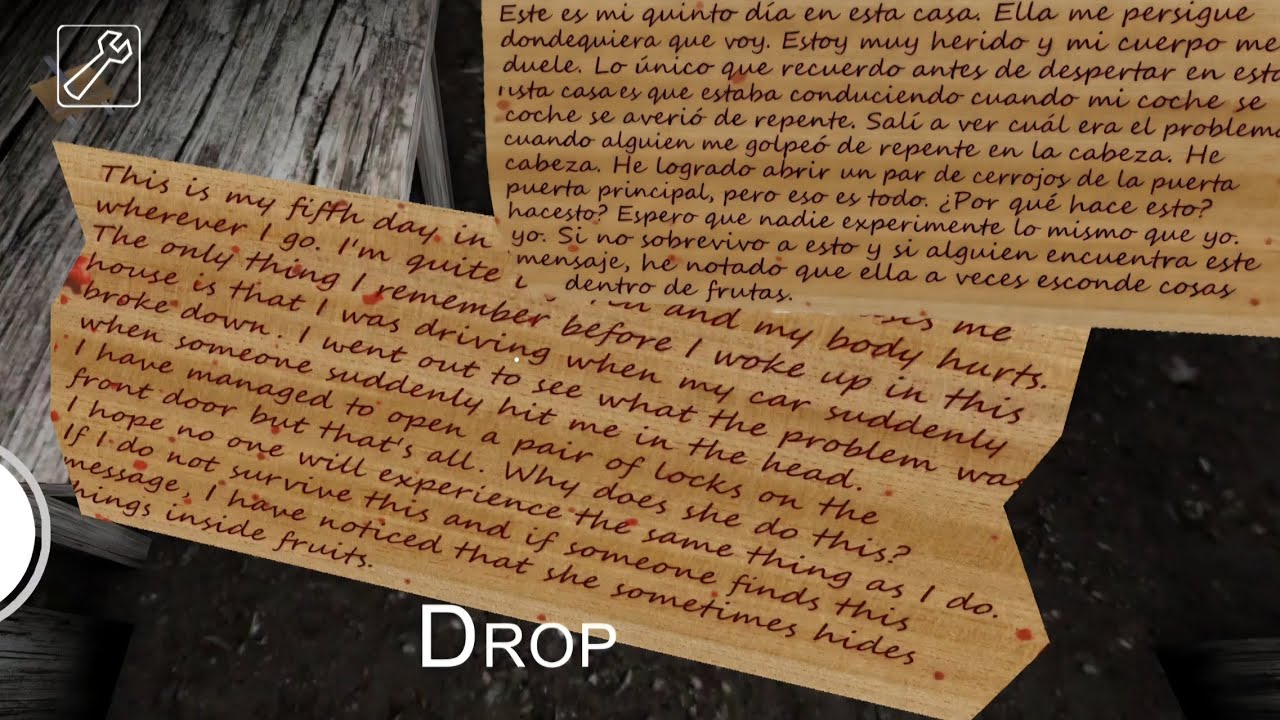 Este es mi quinto día en esta casa. Ella me persigue
dondequiera que voy. Estoy muy herido y mi cuerpo me
duele. Lo único que recuerdo antes de despertar en esta
usta casa es que estaba conduciendo cuando mi coche se
coche se averió de repente. Salí a ver cuál era el problema
cuando alguien me golpeó de repente en la cabeza. He
cabeza. He logrado abrir un par de cerrojos de la puerta
puerta principal, pero eso es todo. ¿Por qué hace esto?
hacesto? Espero que nadie experimente lo mismo que yo.
yo. Si no sobrevivo a esto y si alguien encuentra este
mensaje, he notado que ella a veces esconde cosas
dentro de frutas.
This is my fifth day in
wherever I go. I'm quite and my body hurts. me
The only thing I remember before I woke up in this
house is that I was driving when my car suddenly
broke down. I went out to see what the problem was
when someone suddenly hit me in the head.
I have managed to open a pair of locks on the
front door but that's all. Why does she do this?
I hope no one will experience the same thing as I do.
If I do not survive this and if someone finds this
message, I have noticed that she sometimes hides
hings inside fruits.
DROP